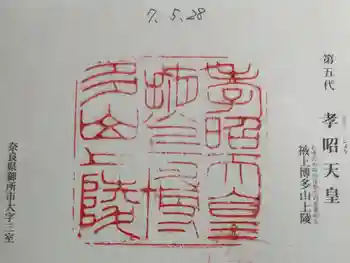 7.5.28
第五代
孝昭天皇
掖上博多山上陵
孝昭天皇
掖上博
多山上陵
奈良県御所市大字三室